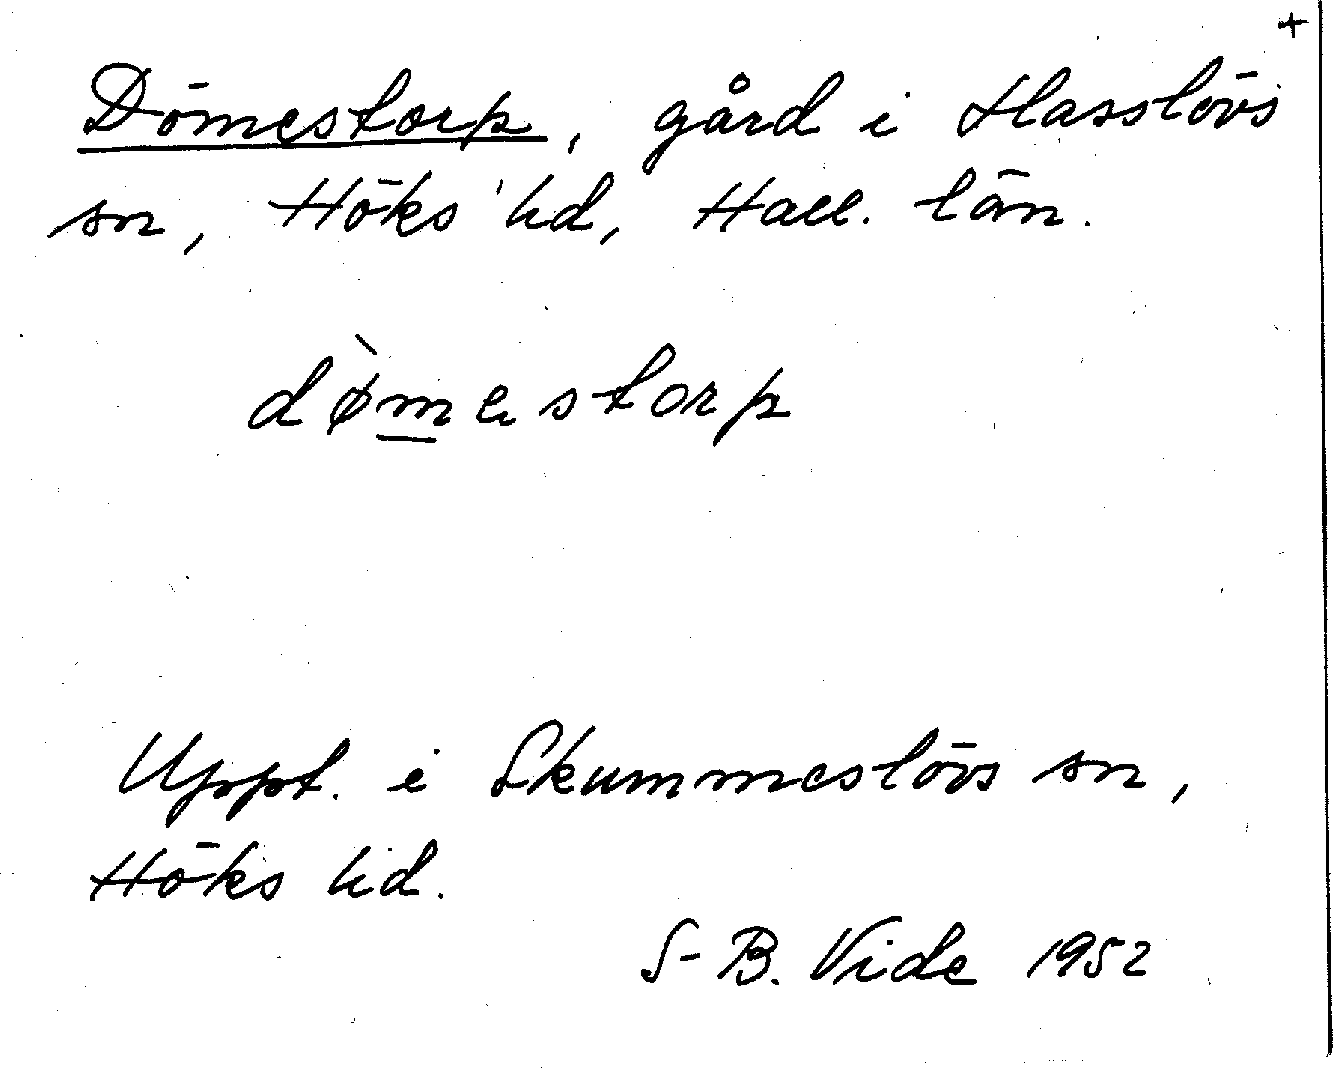 +
Dömestorp, gård i Hasslövs
sn, Höks hd, Hall. län.
dø̀mestorp
Uppt. i Skummeslövs sn,
Höks hd.
S-B. Vide 1952